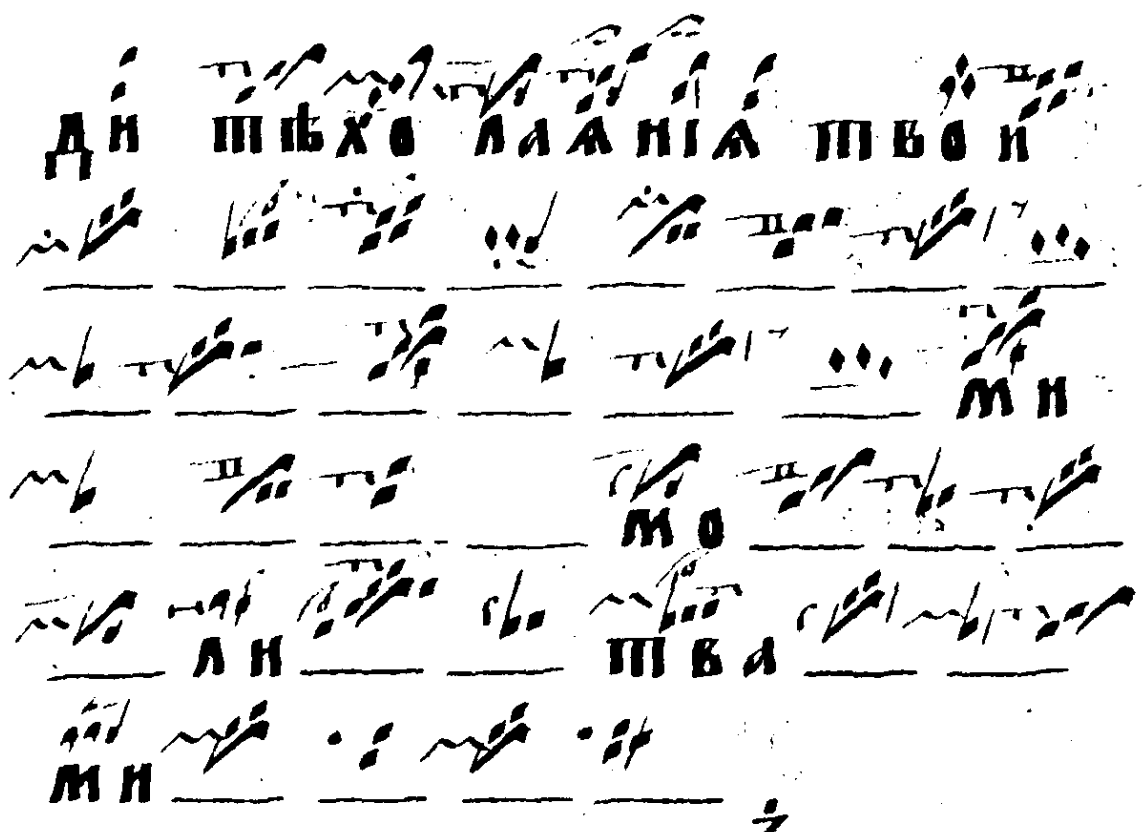 ди тѣхо лаѧніѧ твои
ми
мо
ли тва
ми